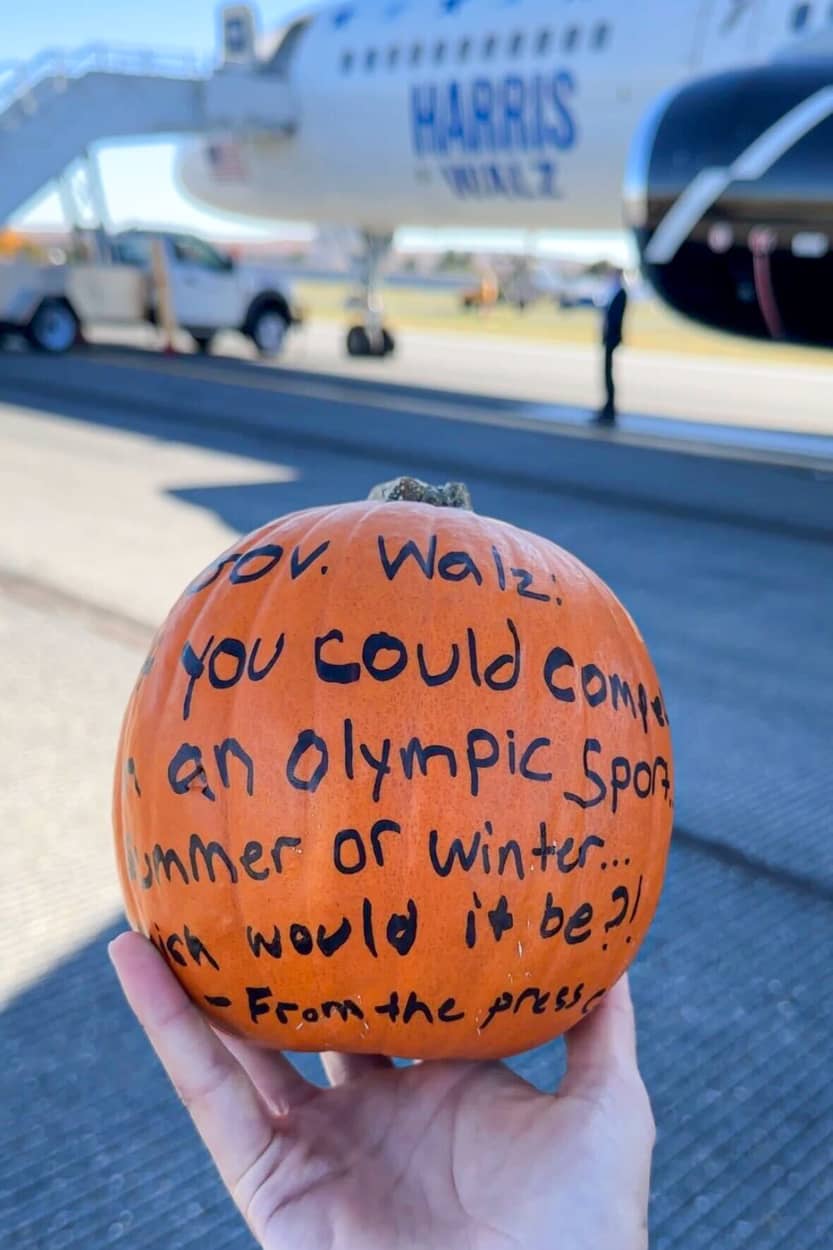 HARRIS
WALZ
Gov. Walz:
you could compe
an Olympic Sport
Summer or winter...
ich would it be?!
- From the press c